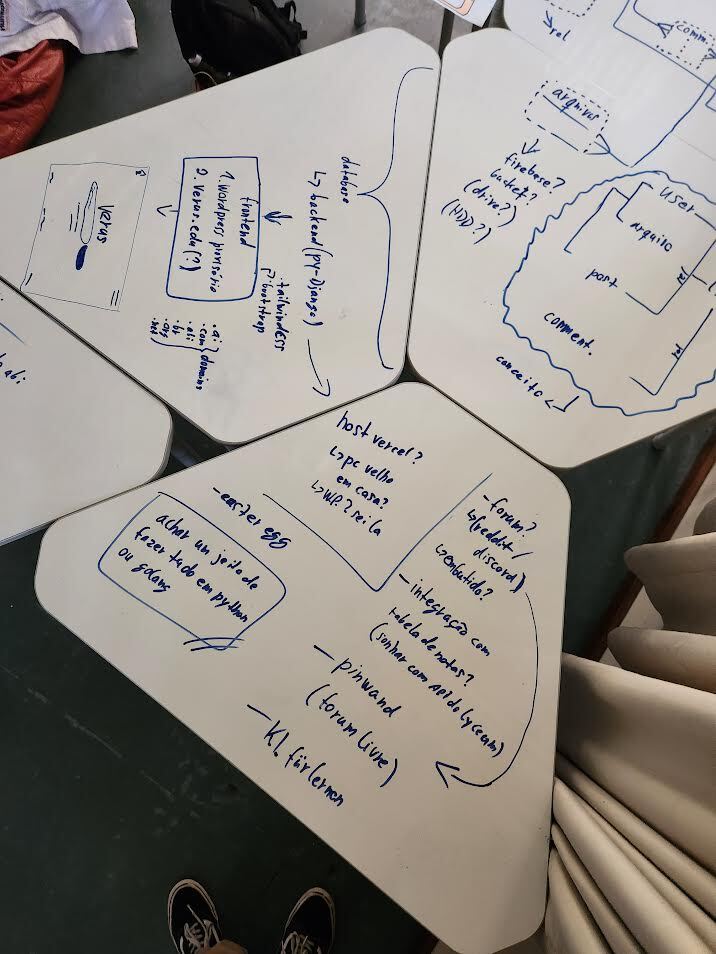 database
↳ backend (py-Django)
.tailwindcss
.bootstrap
frontend
1. wordpress provisório
2. verus.edu(?)
verus
.ai
.com
.br
.org
.net
domains
rel
comm
arquivos
firebase?
(drive?)
(HDD?)
user
arquivo
post
comment.
rel
rel
conceito
abi
host vercel?
↳ pc velho
em casa?
↳ W.P.? sei la
- easter egg
achar um jeito de
fazer tudo em python
ou golang
- forum?
↳ (reddit/
discord)
↳ embutido?
- integração com
tabela de notas?
(sonhar com API do lyceum)
- pinwand
(forum livre)
- KI für lernen